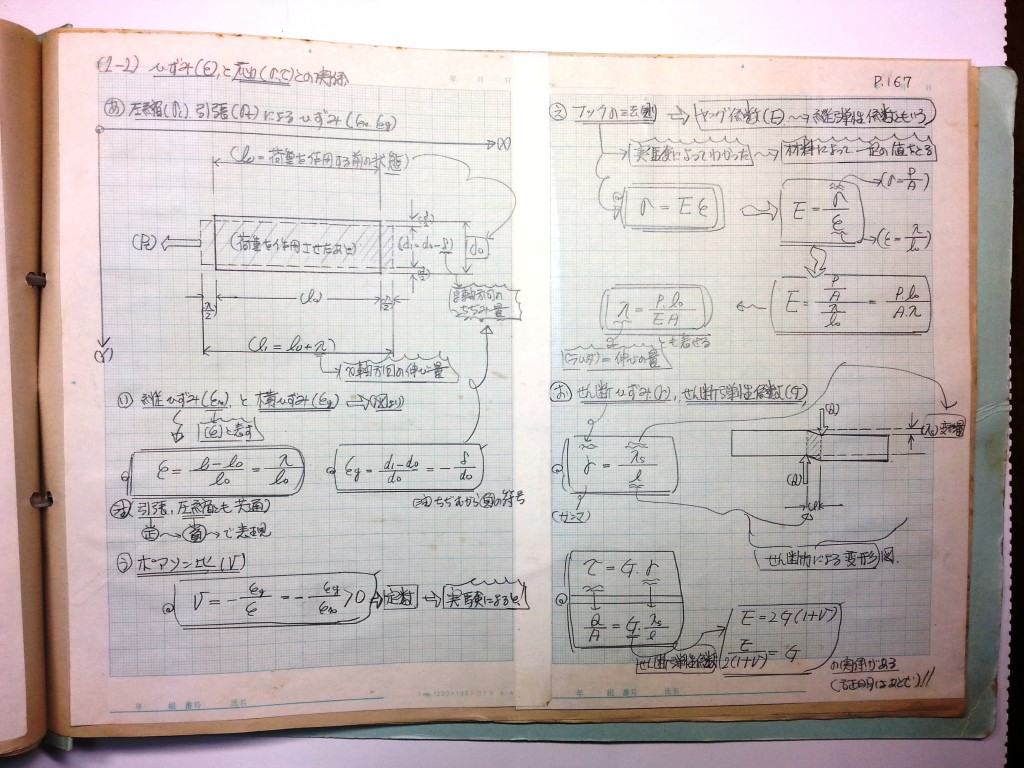 (1-2) ひずみ(ε)と応力(σ,τ)との関係
P.167
あ 圧縮(Pc) 引張(Pt)によるひずみ(εx εy)
(x)
(l₀=荷重を作用する前の状態)
(Pt)
(荷重を作用させたあと)
(d₁=d₀-δ)
d₀
λ/2
(l₀)
λ/2
y軸方向のちぢみ量
(l₁=l₀+λ)
x軸方向の伸び量
(y)
い 縦ひずみ(εx)と横ひずみ(εy) ⇒(図より)
(ε)と表す
ε = l₁-l₀/l₀ = λ/l₀
εy = d₁-d₀/d₀ = -δ/d₀
ちぢむから負の符号
注 引張、圧縮も共通
正〜負〜で表現
う ポアソン比(ν)
ν = -εy/ε = -εy/εx > 0 ⇒ 定数 ⇒ 実験によると!
え フックの法則 ⇒ ヤング係数(E〜縦弾性係数ともいう)
実験によってわかった 〜 材料によって一定の値をとる
σ = Eε
E = σ/ε
(σ=P/A)
(ε=λ/l₀)
λ = P・l₀/EA
も表せる
E = P/A / λ/l₀ = P・l₀/A・λ
(ラムダ)=伸びの量
お せん断ひずみ(γ)、せん断弾性係数(G)
γ = λs/l
(ガンマ)
(Q)
(λs)変形量
(Q)
せん断力による変形図.
τ = G・γ
Q/A = G・λs/l
せん断弾性係数
E = 2G(1+ν)
E/2(1+ν) = G
の関係がある
(証明はあとで)!!
年 組 番号 氏名
年 組 番号 氏名